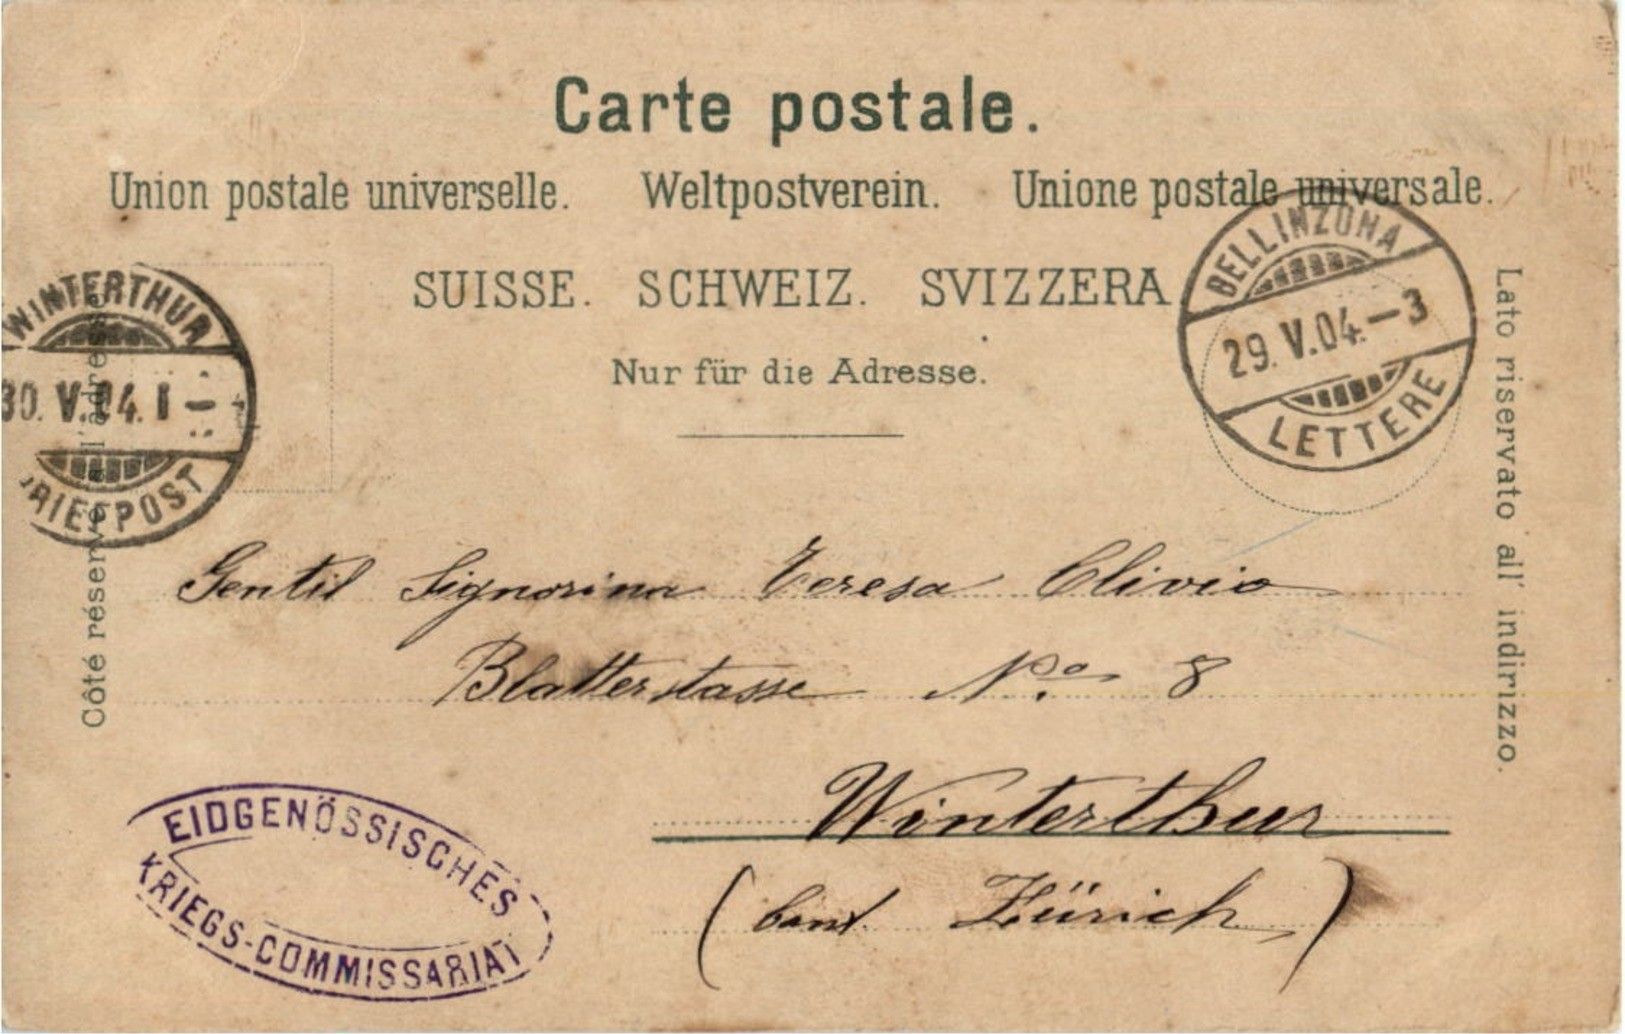 Carte postale.
Union postale universelle. Weltpostverein. Unione postale universale.
SUISSE. SCHWEIZ. SVIZZERA
Nur für die Adresse.
Côté réservé à l'adresse
Lato riservato all' indirizzo.
WINTERTHUR
30. V. 04. I –
BRIEFPOST
BELLINZONA
29. V. 04. – 3
LETTERE
Gentil Signorina Teresa Clivio
Blatterstasse No. 8
Winterthur
(Cant. Zürich)
EIDGENÖSSISCHES
KRIEGS-COMMISSARIAT